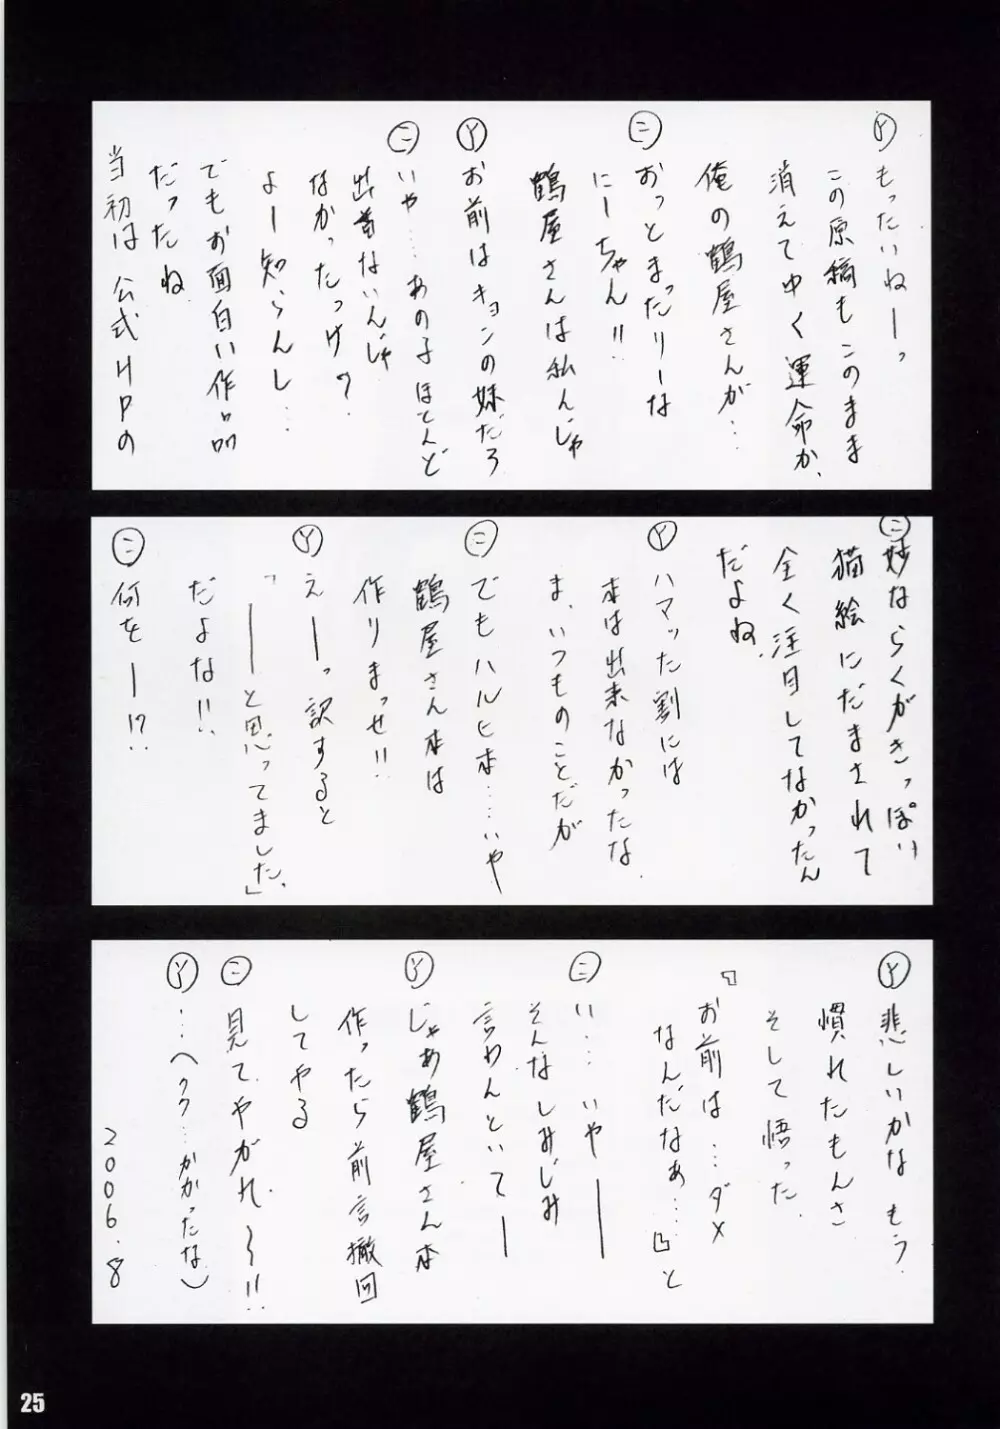 ト もったいねーっ
この原稿もこのまま
消えてゆく運命か、
俺の鶴屋さんが…
ニ おっとまったりーな
にーちゃん!!
鶴屋さんは私んじゃ
ト お前はキョンの妹だろ
ニ いや……あの子ほとんど
出番ないんじゃ
なかったっけ?
よー知らんし…
でもお面白い作品
だったね
当初は公式HPの
ニ 妙ならくがきっぽい
猫絵にだまされて
全く注目してなかったん
だよね、
ト ハマッた割には
本は出来なかったな
ま、いつものことだが
ニ でもハルヒ本……いや
鶴屋さん本は
作りまっせ!!
ト えーっ訳すると
「――と思ってました。」
だよな!!
ニ 何をー!?
ト 悲しいかなもう
慣れたもんさ
そして悟った
「お前は…ダメ
なんだなぁ…」と
ニ い…いや――
そんなしみじみ
言わんといてー
ト じゃあ鶴屋さん本
作ったら前言撤回
してやる
ニ 見てやがれ〜!!
ト (…ヘクク…かかったな)
2006.8
25